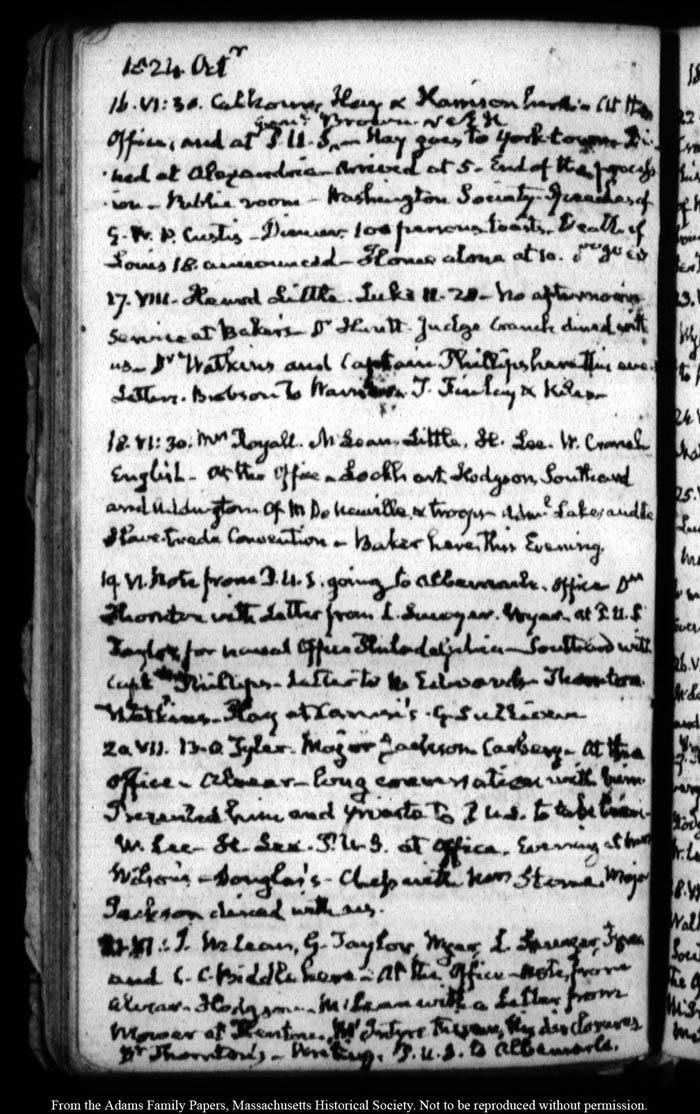 1824 Octr
16. VI:30. Calhoun, Hay & Harrison here - At the
Genl. Brown
Office, and at P.U.S. - Hay goes to York town - Di-
ned at Alexandria - Arrived at 5 - End of the process
ion - Public room - Washington Society - Speeches of
G. W. P. Custis - Dinner, 100 persons toasts - Death of
Louis 18. announced - Home alone at 10.
17. VIII - Heard Little. Luke 11. 28 - No afternoon
Service at Baker's - Dr Huntt. Judge Cranch dined with
us - Dr Watkins and Captain Phillips here this eve.
Letters. Bobson to T. Finley & Niles -
18. VI:30. Mrs Royall. McLean. Little. H. Lee. W. Cranch
English - At the Office - Lockhart, Hodgson, Southard
and Addington of M De Neuville & troops - Lakes and the
Slave trade Convention - Baker here this Evening.
19. VI. Note from P.U.S. going to Albemarle. Office Dr
Thornton with Letter from L. Sawyer. Wyer - at P.U.S
Taylor for naval Office Philadelphia - Southard with
Captn Phillips - Letter to N. Edwards - Thornton.
Watkins - Hay at G. Sullivan
20. VII. B. O Tyler. Major Jackson Carbery - At the
Office - Alvear - long conversation with him.
Presented him and Yriarte to P U.S. to take leave -
W. Lee - H. Lee. P.U.S. at Office. Evening at Mrs
Wilson's - Douglas's - Chess with Mrs Stone. Major
Jackson dined with us.
21. VI: J. McLean, G. Taylor, Wyer, L. Sawyer,
and C. C. Biddle here - At the Office - Note from
Alvear - Hodgson - McLean with a Letter from
Mower at Trenton. McIntyre his disclosures
Dr Thornton's - P.U.S. to Albemarle.
From the Adams Family Papers, Massachusetts Historical Society. Not to be reproduced without permission.